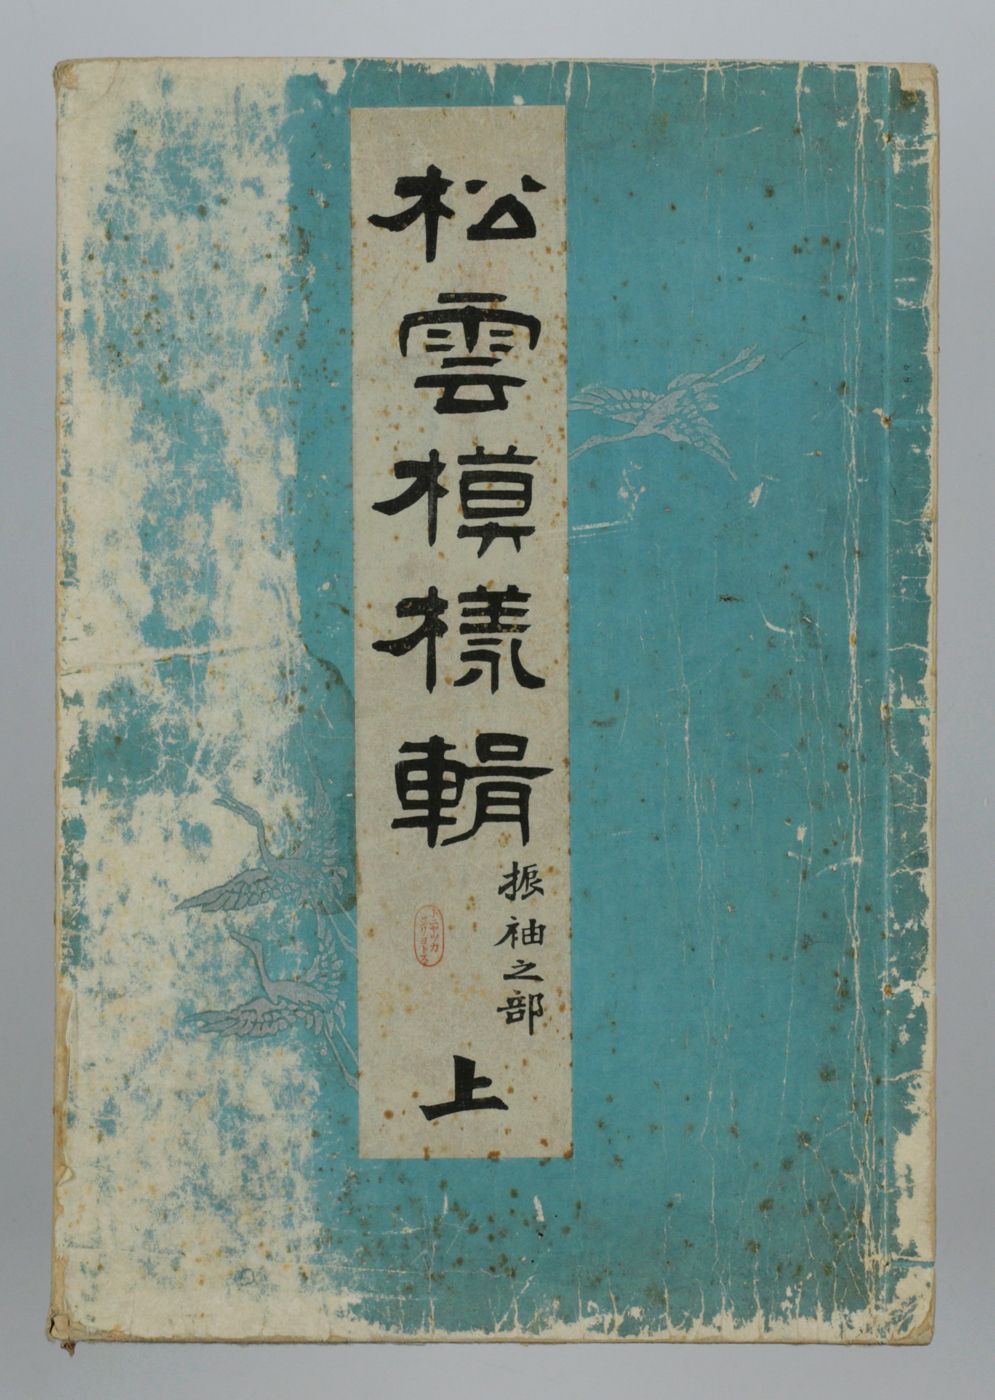 松雲模様輯
振袖之部
上